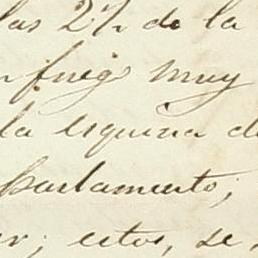 las 2½ de la
fuego muy
la esquina de
Parlamento;
estos, se